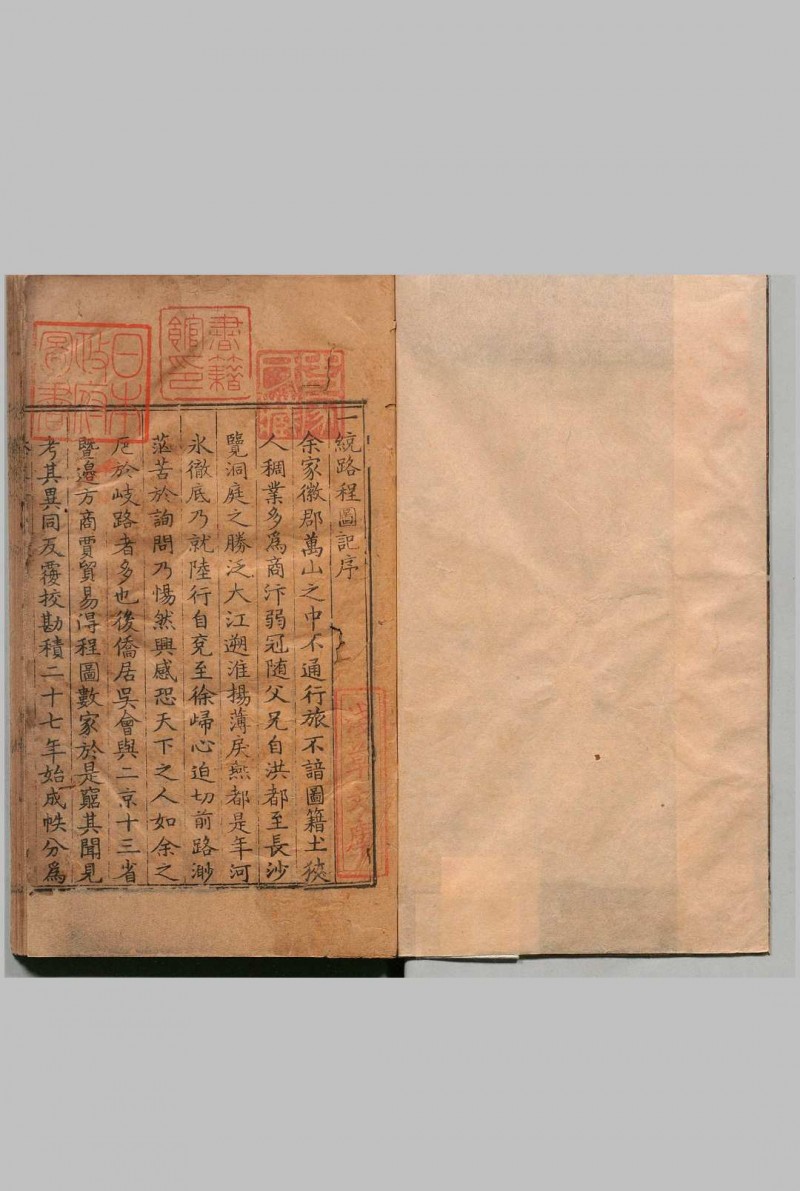 一統路程圖記序
余家徽郡萬山之中不通行旅不諳圖籍土狹
人稠業多為商汴弱冠随父兄自洪都至長沙
覽洞庭之勝泛大江溯淮揚薄戾燕都是年河
氷徹底乃就陸行自兖至徐歸心迫切前路渺
茫苦於詢問乃惕然興感恐天下之人如余之
厄於岐路者多也後僑居吳會與二京十三省
暨邊方商賈貿易得程圖數家於是窮其聞見
考其異同反覆挍勘積二十七年始成帙分為
書籍
館印
日本
政府
圖書